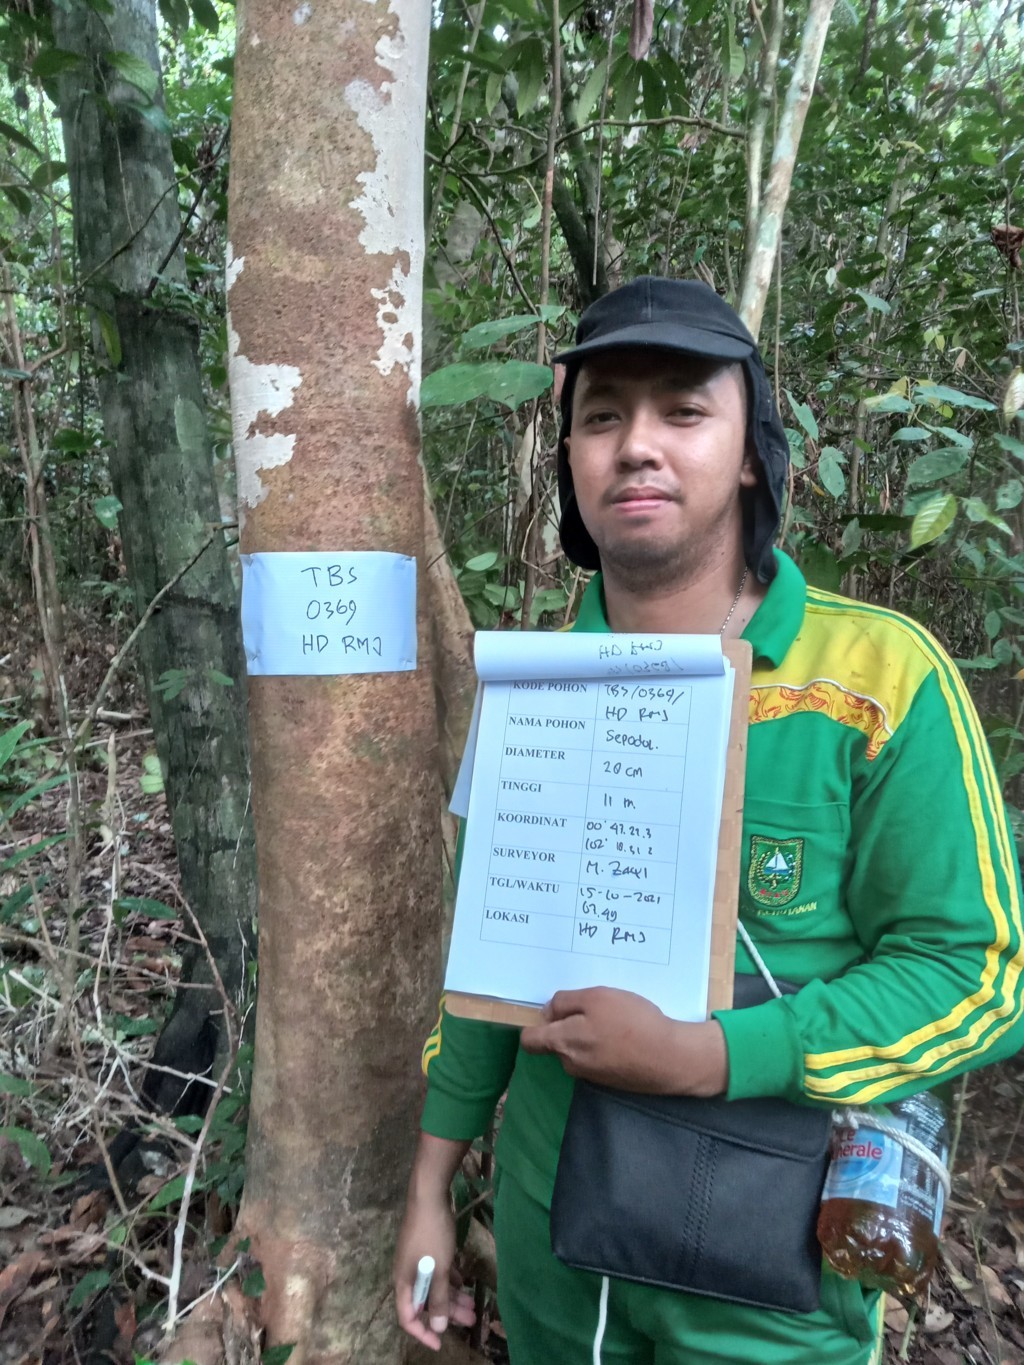 TBS
0369
HD RMJ
HD RMJ
KODE POHON TBS/0369/
HD RMJ
NAMA POHON Sepodol.
DIAMETER 20 cm
TINGGI 11 m
KOORDINAT 00° 47. 21. 3
102° 18. 31 2
SURVEYOR M. Zaul
TGL/WAKTU 15-10-2021
07.49
LOKASI HD RMJ
nerale